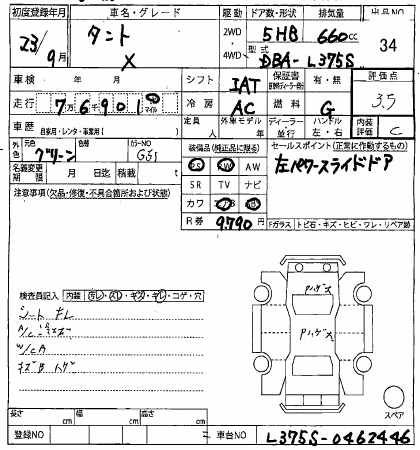 初度登録年月 車名・グレード 駆動 ドア数・形状 排気量 出品NO
23/9月 タント X 2WD 4WD 5HB 660cc 34
型式 DBA-L375S
車検 年 月 シフト IAT 保証書 有・無 評価点
走行 7万6千901 マイル 冷房 AC 燃料 G 3.5
車歴 自家用・レンタ・事業用( ) 定員 人 外車モデル 年 ディーラー 並行 ハンドル 左・右 内装評価 C
外色 元色 グリーン 色替 カラーNO G55
装備品(純正品に限る) セールスポイント(正常に作動するもの)
名義変更期限 月 日迄 積載 t
PS PW AW 左パワースライドドア
SR TV ナビ
注意事項(欠品・修復・不具合箇所および状態)
カワ
R券 9,790 円 Fガラス トビ石・キズ・ヒビ・ワレ・リペア跡
検査員記入 内装 汚レ・スレ・キズ・切レ・コゲ・穴
シート キレ
A/Cキズ
W/C A
キズ凹 トゲ
Pハゲズ
Pハゲズ
スペア
長さ cm 幅 cm 高さ cm
登録NO 車台NO L375S-0462446